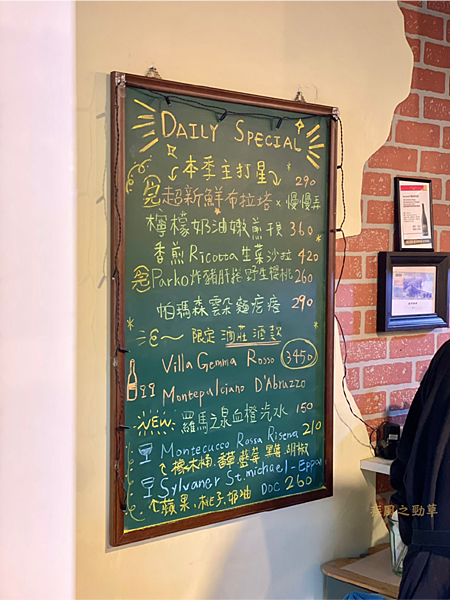 DAILY SPECIAL
本季主打星
超新鮮布拉塔 × 慢慢弄 290
檸檬奶油嫩煎干貝 360
香煎Ricotta生菜沙拉 420
Parko炸豬肝捲野生櫻桃 260
帕瑪森雲朵麵疙瘩 290
限定 酒莊酒款
Villa Gemma Rosso 3450
Montepulciano D'Abruzzo
NEW 羅馬之泉血橙汽水 150
Montecucco Rossa Riserva 210
橡木桶,香草,藍莓,黑莓,胡椒
Sylvaner St. michael-Eppan
蘋果、桃子、奶油 DOC 260
疾風之勁草